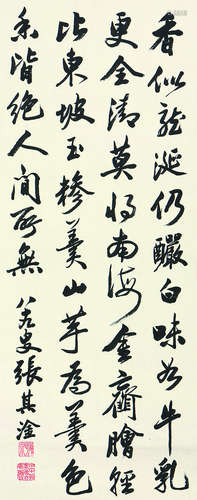 香似龍涎仍釅白味若牛乳
更全清莫將南海金齏膾輕
比東坡玉糝羹山芋為羹色
香皆絕人間所無 叟張其淦